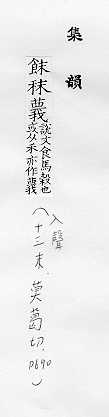 集韻
䬴秣
說文食馬穀也
或从禾亦作
(入聲
十三末,莫葛切, p690)